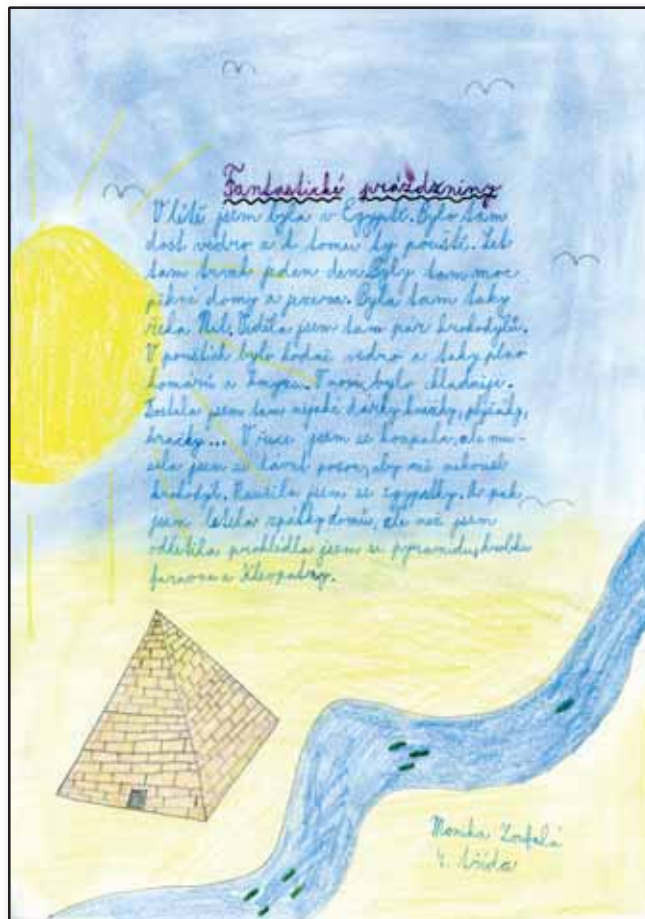 Fantastické prázdzniny
V létě jsem byla v Egyptě. Bylo tam
dost vedro a k tomu ty pouště. Let
tam trval jeden den. Byly tam moc
pěkne domy a jezera. Byla tam taky
řeka Nil. Viděla jsem tam pár krokodýlů.
V pouštích bylo hodně vedro a taky plno
komárů a hmyzu. V noci bylo chladněje.
Dostala jsem tam nějaké dárky knížky, plyšáky,
hračky... V řece jsem se koupala, ale mu-
sela jsem si dávat pozor, aby mě nekousl
krokodýl. Naučila jsem se egyptsky. A pak
jsem letěla zpátky domů, ale než jsem
odletěla prohlédla jsem si pyramidu, hrobku
faraona a Kleopatry.
Monika
4. třída